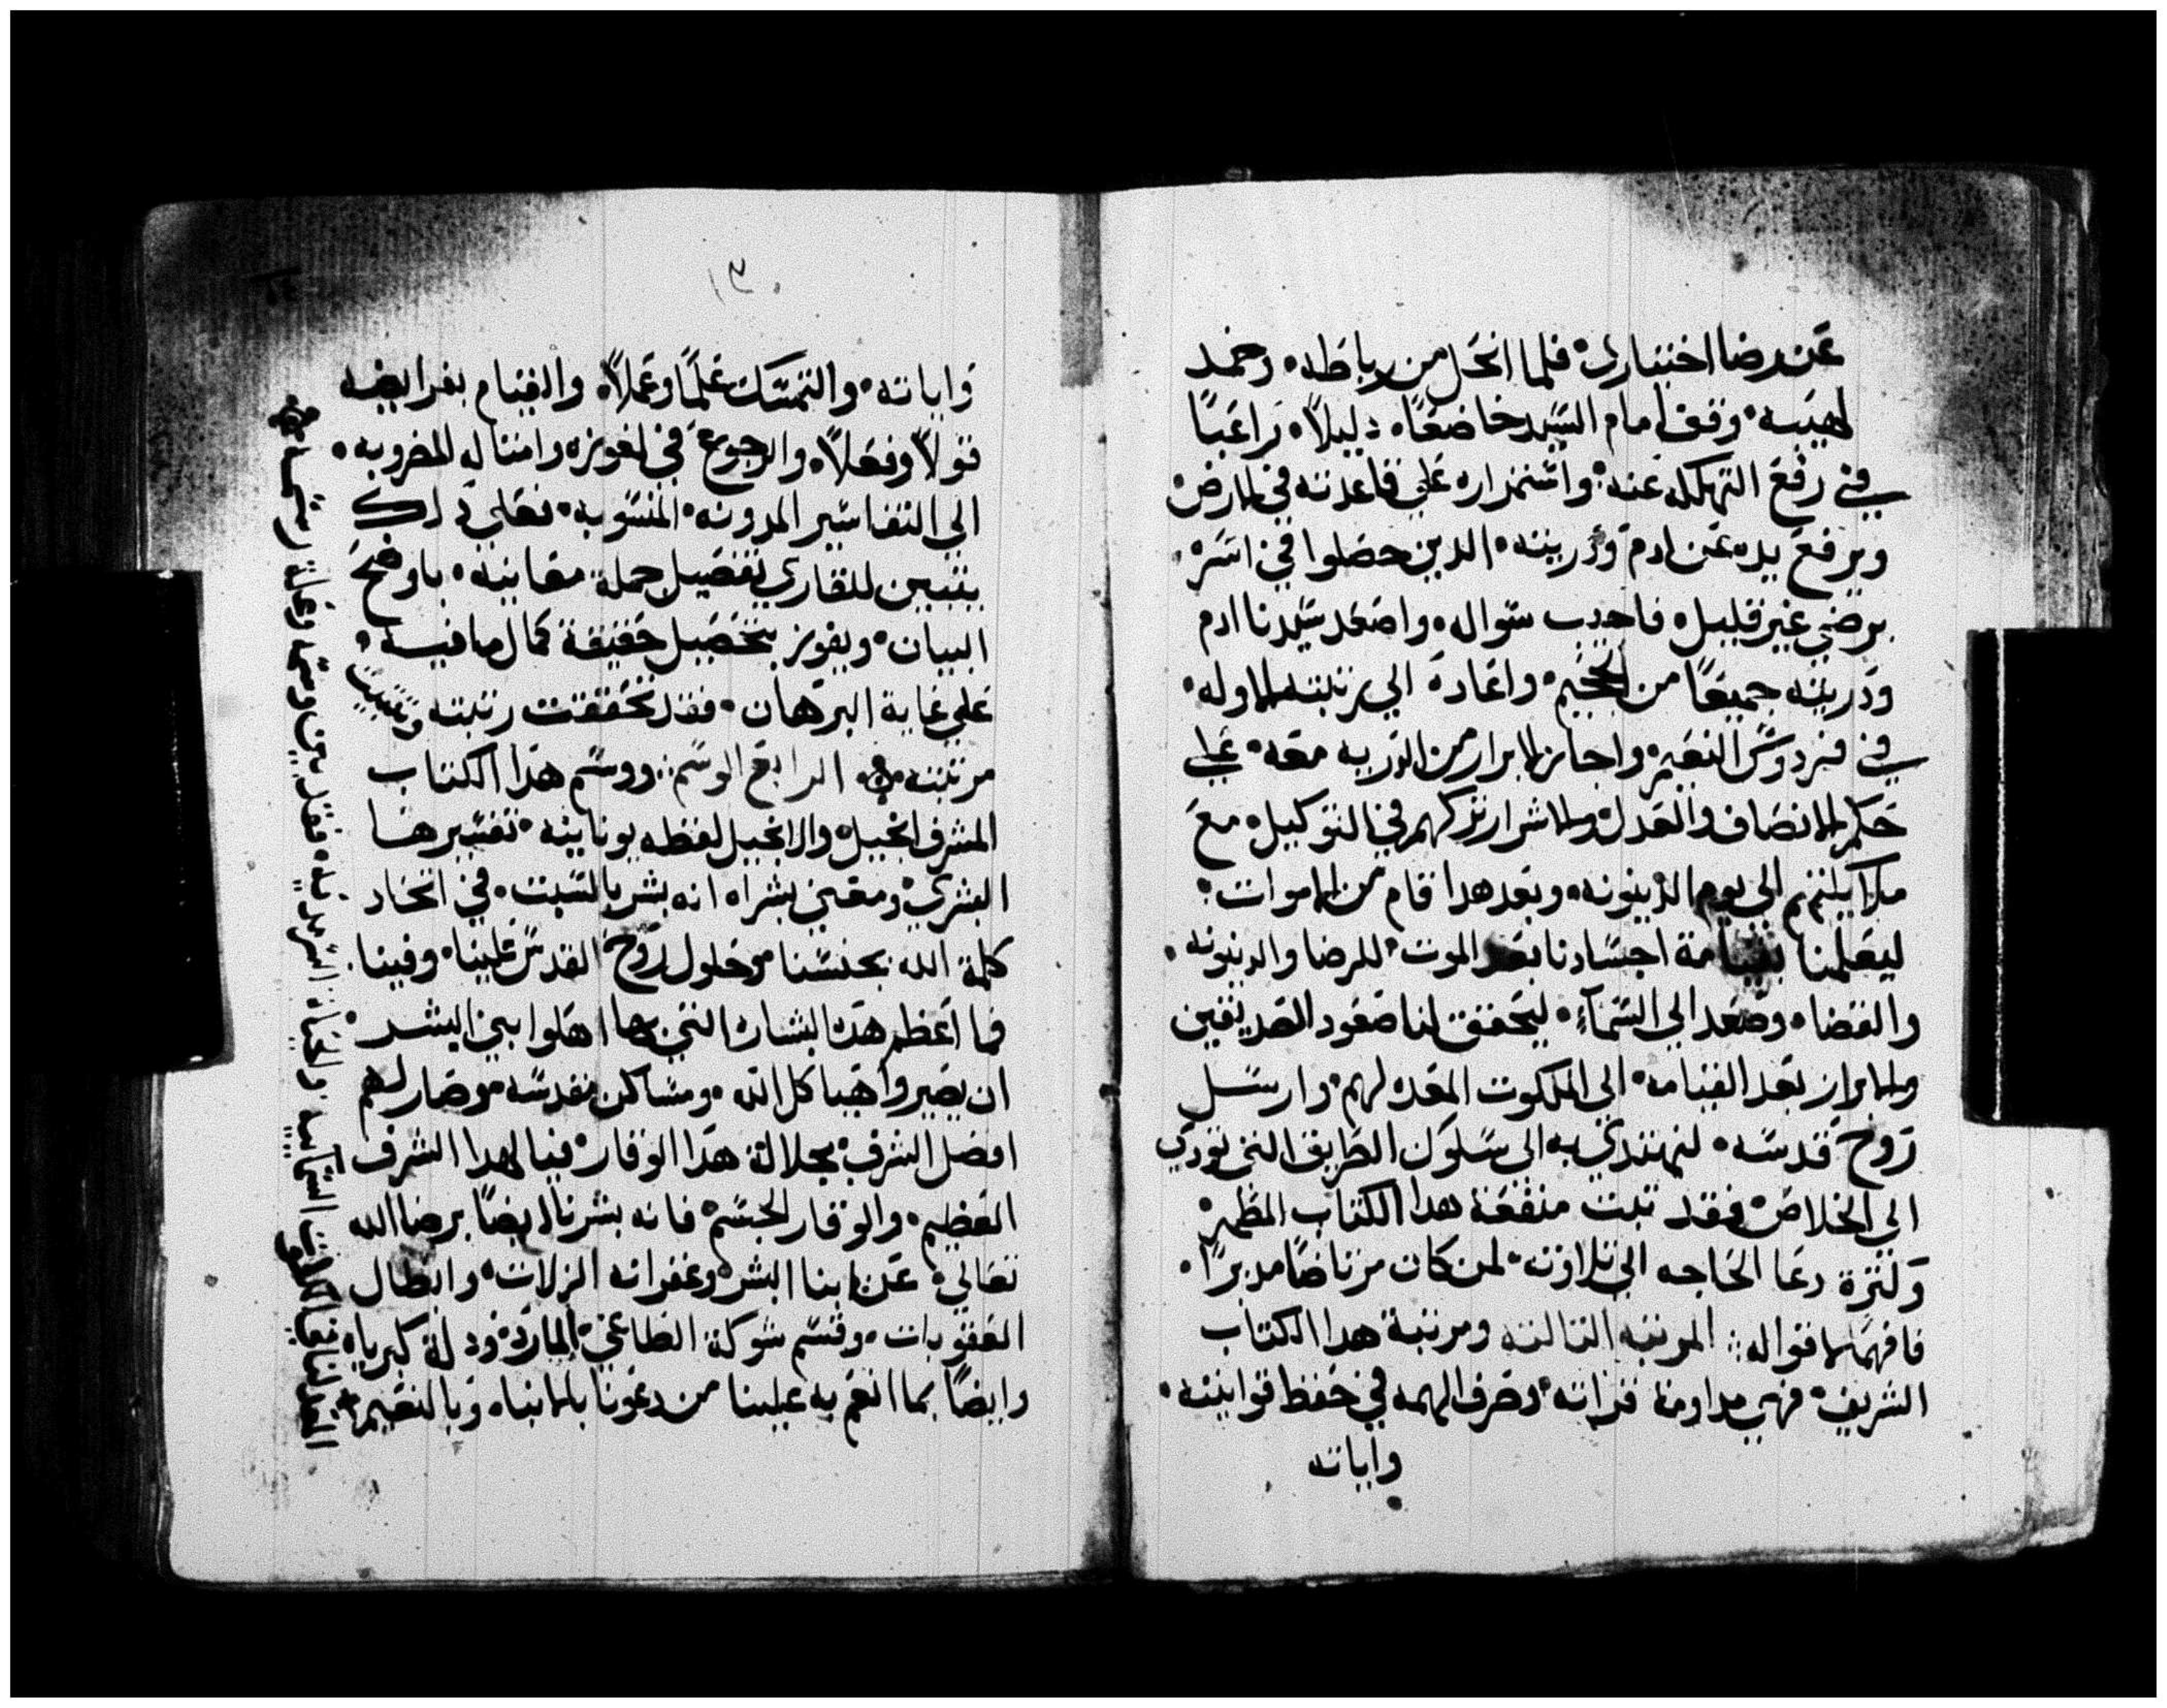 عن رضا اختياري۰ فلما انحل من رباطه۰ وخمد
لهيبه۰ وقف امام السيد خاضعًا۰ دليلاً۰ راغبًا
في رفع التهلكه عنه۰ واستمراره علي قاعدته في الارض۰
ويرفع يده عن ادم ودريته۰ الدين حصلوا في اسره۰
برضي غير قليل۰ فاجيب سواله۰ واصعد سيدنا ادم
ودريته جميعًا من الجحيم۰ واعاده الي رتبته الاوله۰
في فردوس النعيم۰ واجاز الابرار من الدريه معه۰ علي
حكم الانصاف والعدل۰ والاشرار تركهم في التوكيل۰ مع
ملاكيتهم الي يوم الدينونه۰ وبعد هدا قام من الاموات۰
ليعلمنا بقيامة اجسادنا بعد الموت۰ للرضا والدينونه۰
والقضا۰ وصعد الي السمآء۰ ليحقق لنا صعود الصديقين
والابرار بعد القيامه۰ الي الملكوت المعده لهم۰ وارسل
روح قدسه۰ لنهتدي به الي سلوك الطريق التي تودي
الي الخلاص۰ فقد تبت منفعة هدا الكتاب المطهر۰
وكترة دعا الحاجه الي تلاوته۰ لمن كان مرتاضًا مدبرًا۰
فافهم الاقواله ⁘ المرتبه التالته ومرتبة هدا الكتاب
الشريف۰ فهي مداومة قراته۰ وصرف الهمه في حفظ قوانينه۰
واياته
١٣
واياته۰ والتمسك علمًا وعملاً۰ والقيام بفرايضه
قولاً وفعلاً۰ والرجوع في لغوزه وامتاله المضروبه۰
الي التفاسير المدونه۰ المنسوبه۰ فعلي دلك
يتبين للقاري تفصيل جملة معانيه۰ باوضح
البيان۰ ويفوز بتحصيل حقيقة كمال ما فيه۰
علي غاية البرهان۰ فقد تحققت رتبته وتبتت
مرتبته۰ الرابع الوسم ⁘ ووسم هدا الكتاب
المشرف انجيل۰ والانجيل لفظه يونانيه۰ تفسيرها
البشري۰ ومعني بشراه انه بشر بالسبت۰ في اتحاد
كلمة الله بجنسنا۰ وحلول روح القدس علينا۰ وفينا۰
فما اعظم هده البشاره التي بها اهلوا بني البشر۰
ان يصيروا هياكل الله۰ ومساكن مقدسه۰ وصار لهم
افضل الشرف۰ بجلالة هدا الوقار۰ فيا لهدا الشرف
العظيم۰ والوقار الجسم۰ فانه بشرنا ايضًا برضا الله
تعالي۰ عن ابنا البشر۰ وغفرانه الزلات۰ وابطال
العقوبات۰ وقسم شوكة الطاغي۰ المارد۰ ودلة كبرياه
وايضًا بما انعم به علينا من دعونا بالابناه وبالنعيم۰